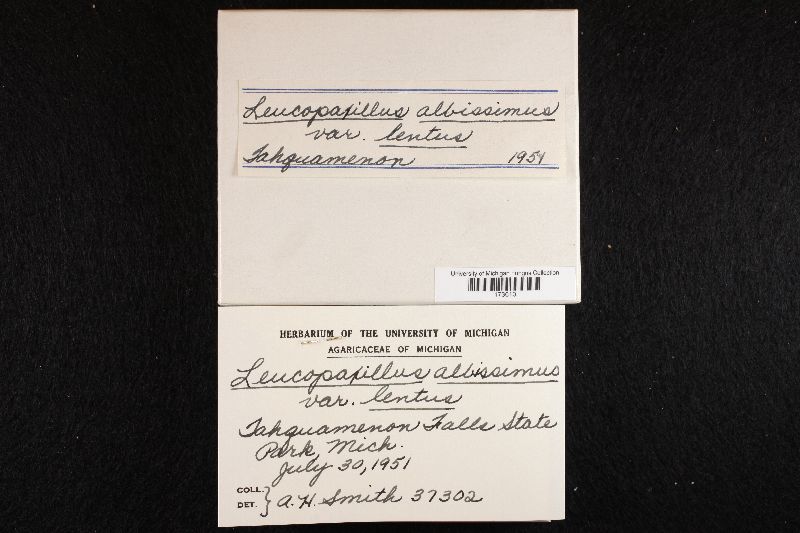 Leucopaxillus albissimus
var. lentus
Tahquamenon 1951
University of Michigan Fungus Collection
HERBARIUM OF THE UNIVERSITY OF MICHIGAN
AGARICACEAE OF MICHIGAN
Leucopaxillus albissimus
var. lentus
Tahquamenon Falls State
Park, Mich.
July 30, 1951
COLL.
DET. A. H. Smith 37302